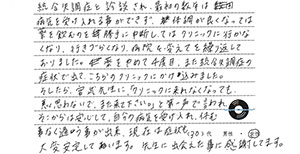 統合失調症と診断され、最初の数年は
病気を受け入れる事ができず、体調が良くなっては
薬を飲むのを勝手に中断してはクリニックに行かな
くなり、行きづらくなり、病院を変えてを繰り返して
おりました。薬をやめて4度目、また統合失調症の
症状で出て、こちらのクリニックにかけ込みました。
そしたら、宮武先生に「クリニックに来れなくなっても、
気に病わないで、また来て下さい。」と第一声で言われ
そこからは安心して、自分の病気を受け入れ、休む
事なく通う事が出来、現在は症状も
大変安定しております。先生に出会えた事に感謝してます。
(30)代 男性・女性